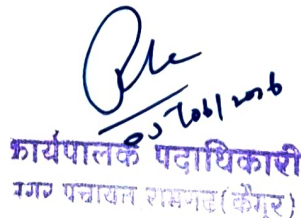 05/06/2026
कार्यपालक पदाधिकारी
नगर पंचायत रामगढ़ (कैमूर)